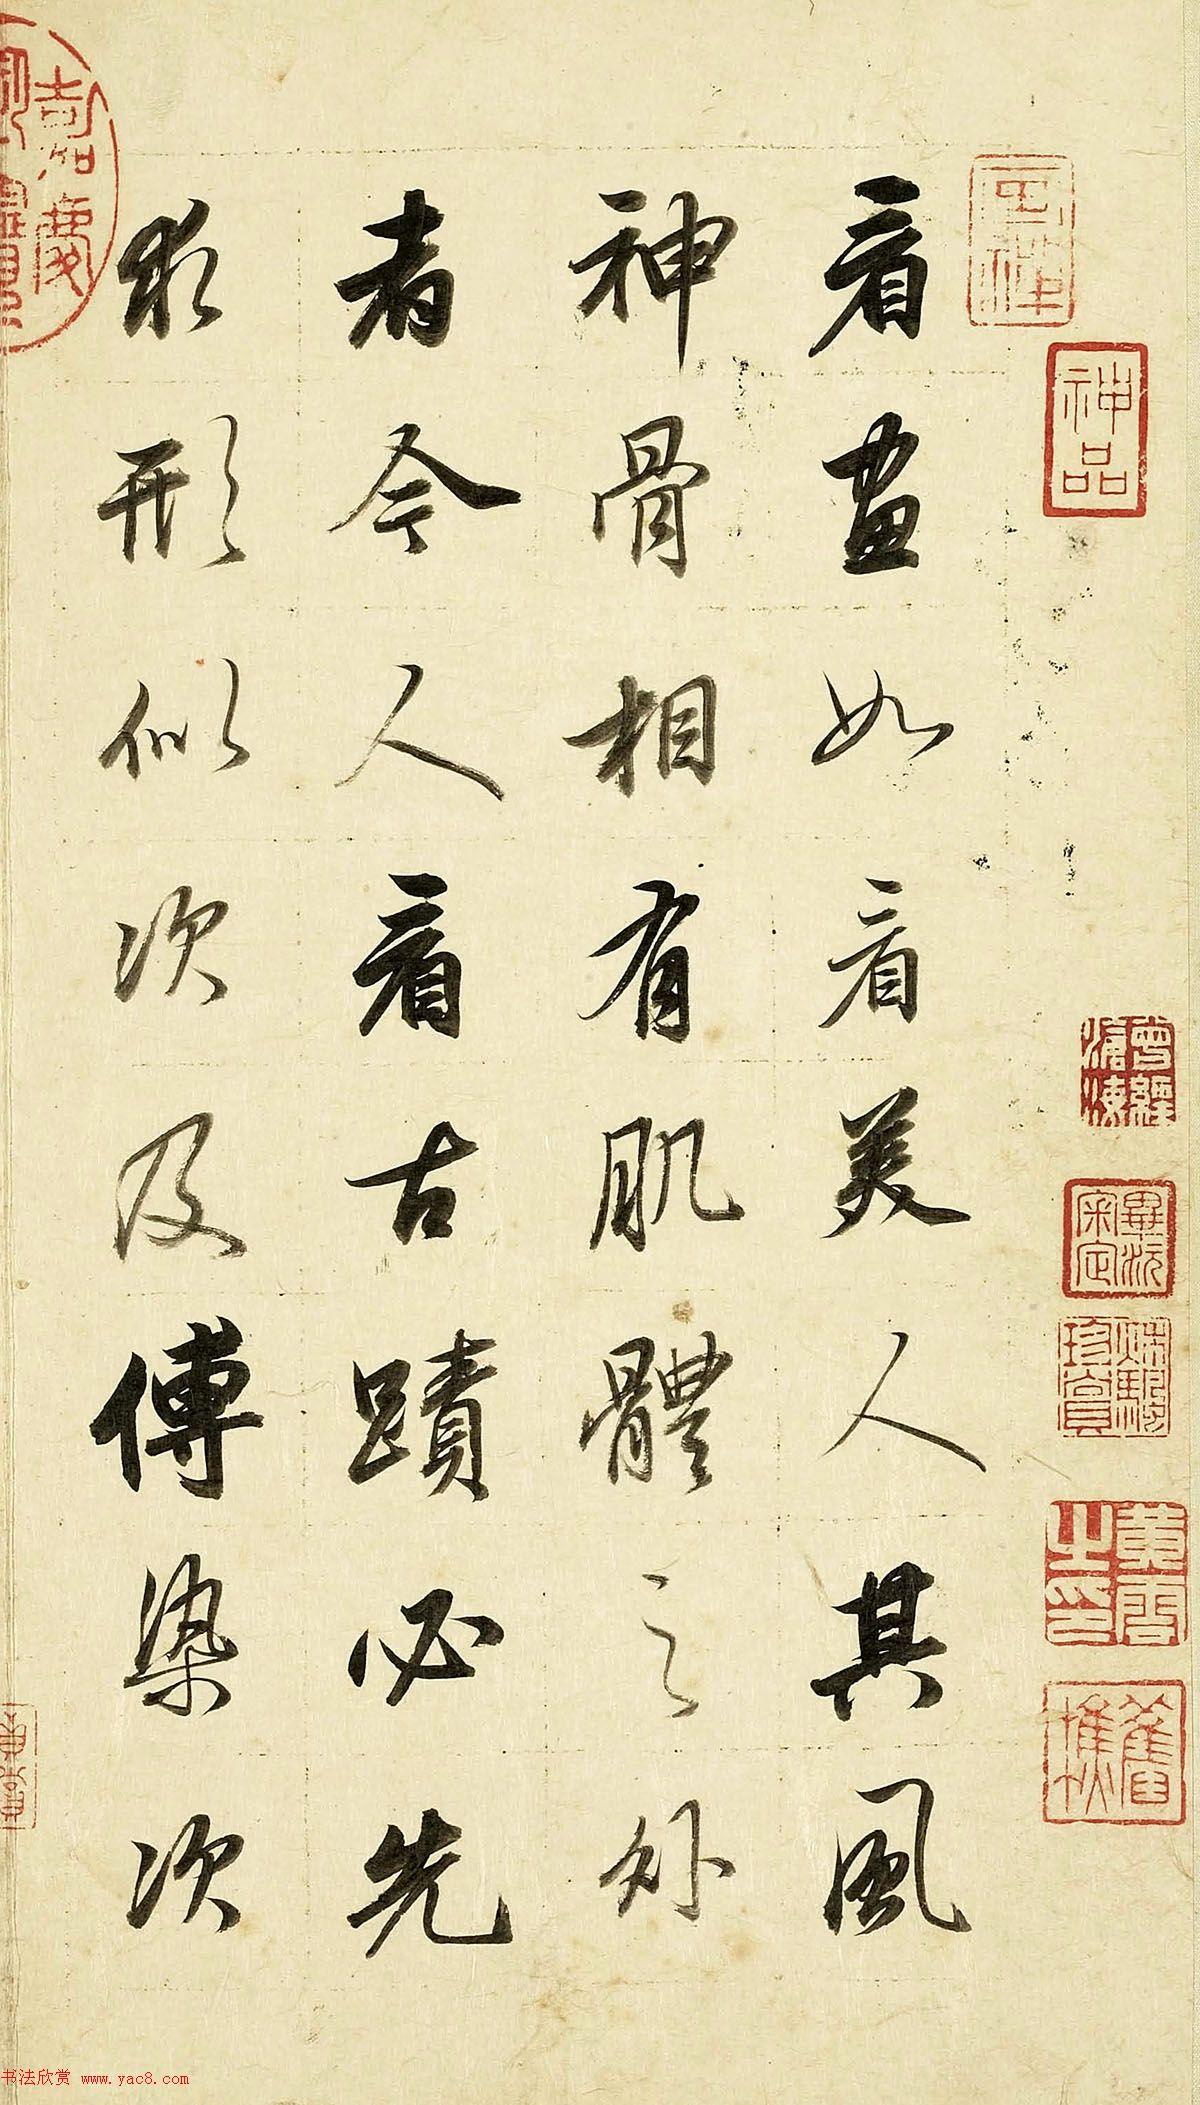 看畫如看美人其風
神骨相有肌體之外
者今人看古蹟必先
求形似次及傅染次
神品
嘉慶
畢沅
審定
珍賞
書法欣赏 www.yac8.com